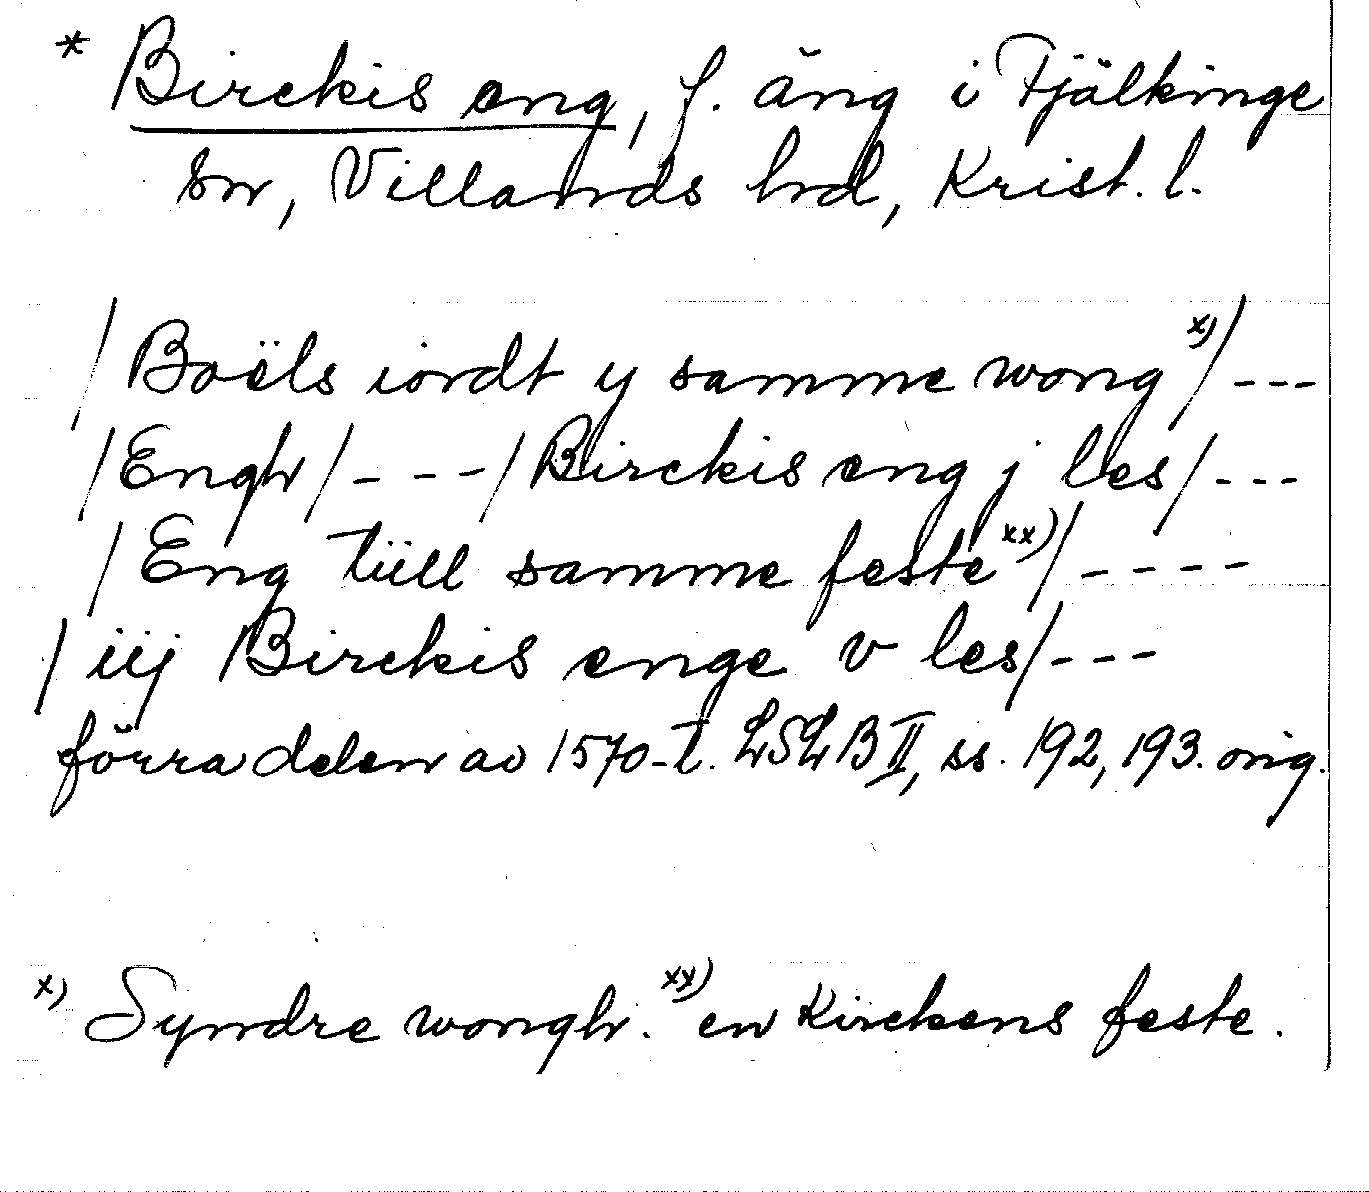 * Birckis eng, f. äng i Fjälkinge
sn, Villands hd, Krist. l.
/Boëls iordt y samme wong x)/ ---
/Engh/ - - - /Birckis eng j les/ ---
/Eng tüll samme feste xx)/ ----
/iij Birckis enge v les/ ---
förra delen av 1570-t. LSLB II, ss. 192, 193. orig.
x) Syndre wongh. xx) en Kirckens feste.